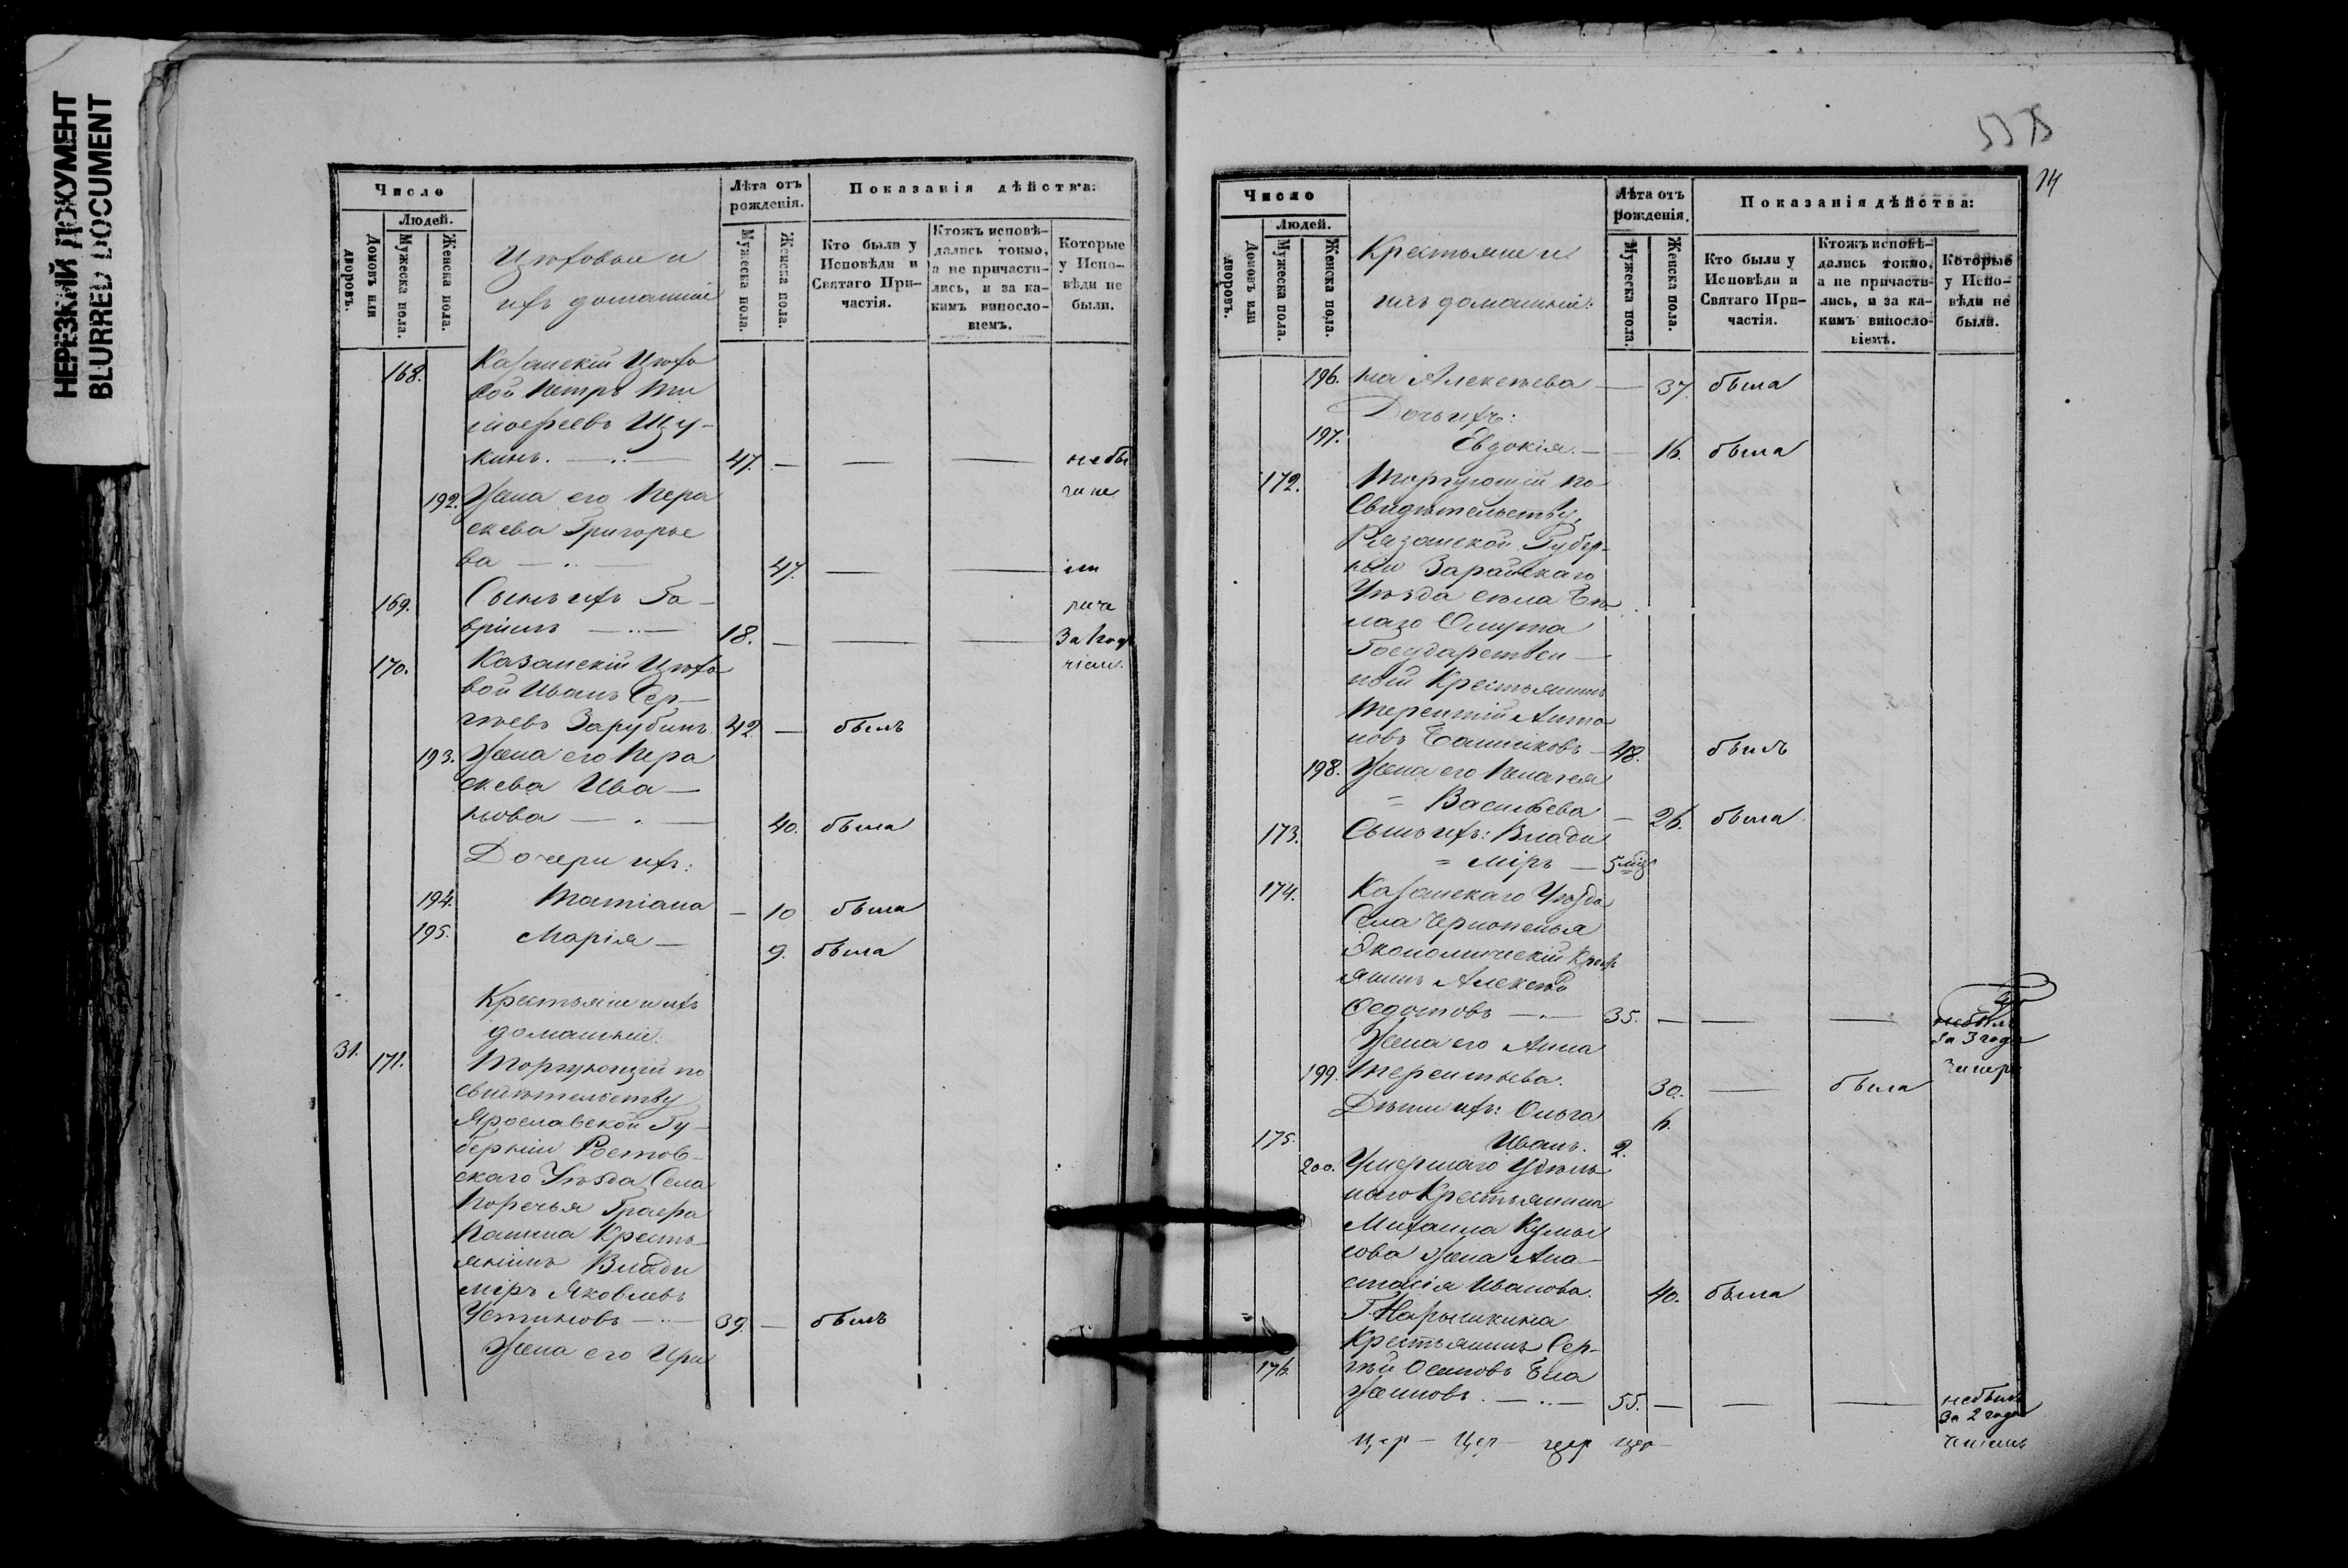 НЕРЕЗКИЙ ДОКУМЕНТ
BLURRED DOCUMENT
Число
Людей.
Домовъ или дворовъ.
Мужеска пола.
Женска пола.
Цеховые и
ихъ домашніе
Лѣта отъ рожденія.
Мужеска пола.
Женска пола.
Показанія дѣйства:
Кто были у Исповѣди и Святаго Причастія.
Ктожъ исповѣдались токмо, а не причастились, и за какимъ винословіемъ.
Которые у Исповѣди не были.
168. Казанскій Цехо
вой Петръ Ти
моѳеевъ Щу-
кинъ. 47. — — — небы
192. Жена его Пера
скева Григорье
ва — 47. — —
169. Сынъ ихъ Га-
вріилъ — 18. — — —
170. Казанскій Цехо
вой Иванъ Сер-
гѣевъ Зарубинъ 42 — былъ
193. Жена его Пера
скева Ива-
нова — 40. была
Дочери ихъ:
194. Татіана — 10 была
195. Марія — 9. была
Крестьяне и ихъ
домашніе.
31. 171. Торгующій по
свидѣтельству
Ярославской Гу-
берніи Ростов-
скаго Уѣзда Села
Поречья Графа
Панина Кресть
янинъ Влади
міръ Яковлевъ
Устиновъ — 39. — былъ
Жена его Ири
14
Число
Людей.
Домовъ или дворовъ.
Мужеска пола.
Женска пола.
Крестьяне и
ихъ домашніе:
Лѣта отъ рожденія.
Мужеска пола.
Женска пола.
Показанія дѣйства:
Кто были у Исповѣди и Святаго Причастія.
Ктожъ исповѣдались токмо, а не причастились, и за какимъ винословіемъ.
Которые у Исповѣди не были.
196. на Алексѣева — 37. была
Дочь ихъ:
197. Евдокія. — 16. была
172. Торгующій по
Свидѣтельству,
Рязанской Губер-
ніи Зарайскаго
Уѣзда села Бѣ
лаго Омута
Государствен-
ный Крестьянинъ
Терентій Анто
новъ 48. былъ
198. Жена его Пелагея
Васильева — 26. была
173. Сынъ ихъ: Влади
= міръ — 5 мѣс
174. Казанскаго Уѣзда
Села
Экономическій Крест
янинъ Алексѣй
Ѳедотовъ — 35. — — — небылъ
за 3 года
Жена его Анна
199. Терентьева. 30. — была
Дѣти ихъ: Ольга 6.
175. Иванъ. 2.
200. Умершаго Удѣль
наго Крестьянина
Михаила
Жена Ана-
стасія Иванова. 40. была
Г. Нарышкина
Крестьянинъ Сер-
176. гѣй Осиповъ Бла
жновъ. — 55. — — — небылъ
за 2 года